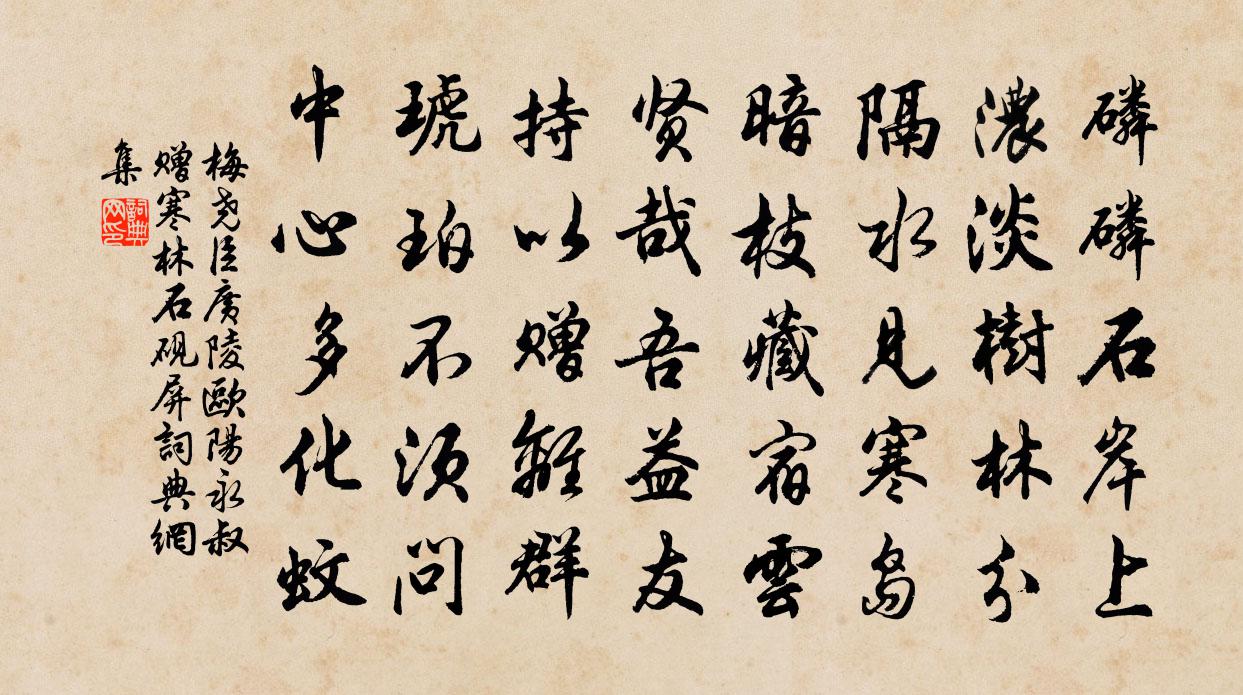 磷磷石岸上
濃淡樹林分
隔水見寒島
暗枝藏宿雲
贤哉吾益友
持以赠離群
琥珀不须问
中心多化蚊
梅尧臣廣陵歐陽永叔
赠寒林石硯屏詞典網
集
詞典网印